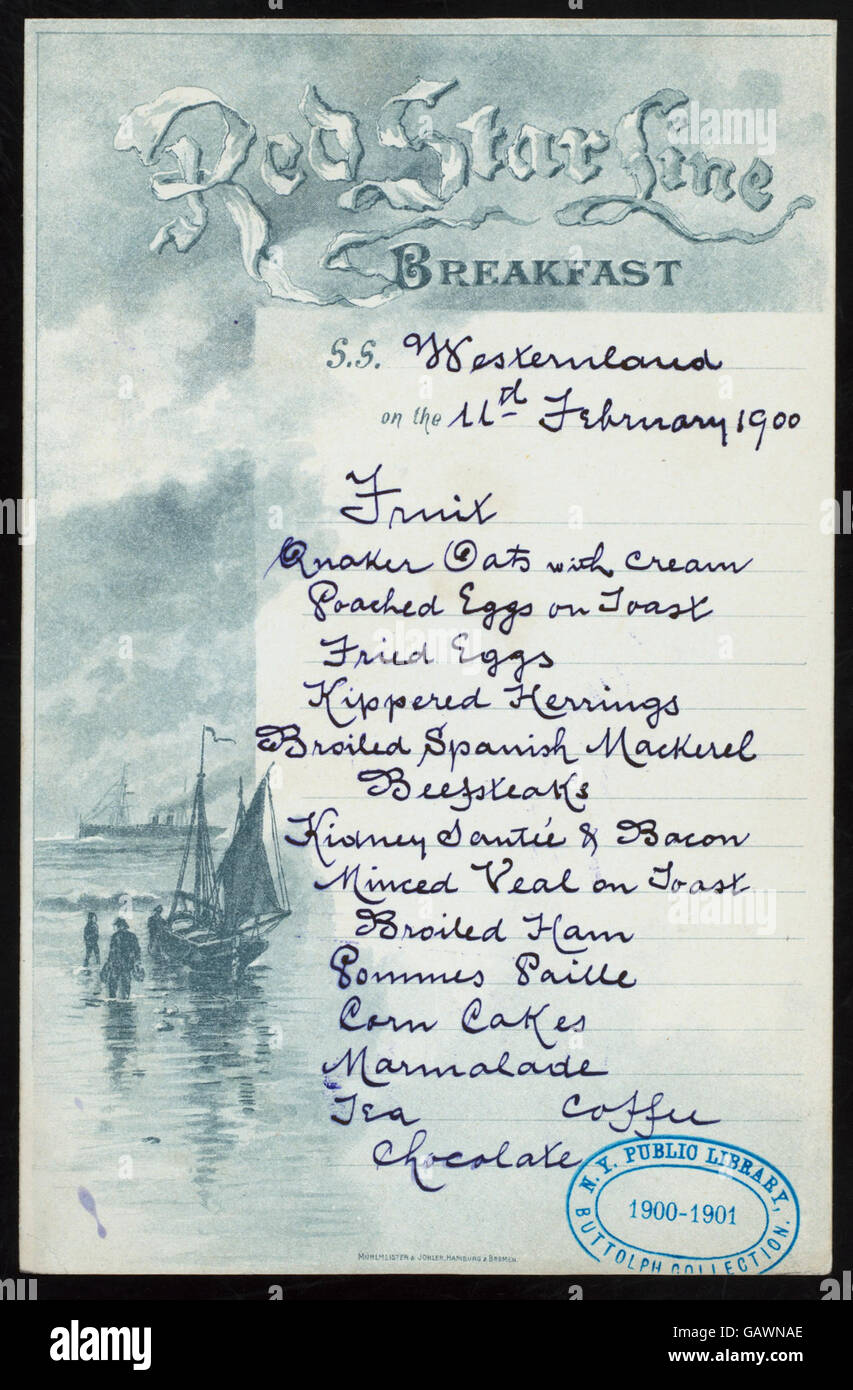 Red Star Line
BREAKFAST
S.S. Westernland
on the 11d February 1900
Fruit
Quaker Oats with Cream
Poached Eggs on Toast
Fried Eggs
Kippered Herrings
Broiled Spanish Mackerel
Beefsteaks
Kidney Sautée & Bacon
Minced Veal on Toast
Broiled Ham
Pommes Paille
Corn Cakes
Marmalade
Tea Coffee
Chocolate
N. Y. PUBLIC LIBRARY,
1900-1901
BUTTOLPH COLLECTION.
MÜHLMEISTER & JOHLER, HAMBURG & BREMEN.
alamy
Image ID: GAWNAE
www.alamy.com